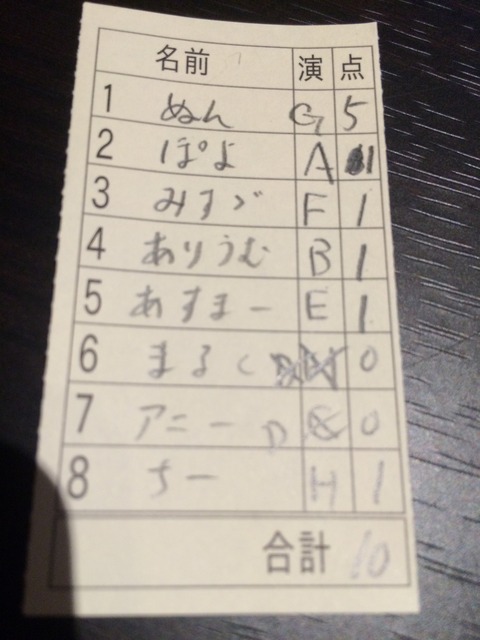 名前 演 点
1 ぬん G 5
2 ぽよ A 1
3 みすゞ F 1
4 ありうむ B 1
5 あすまー E 1
6 まるく 0
7 アニー D 0
8 ちー H 1
合計 10